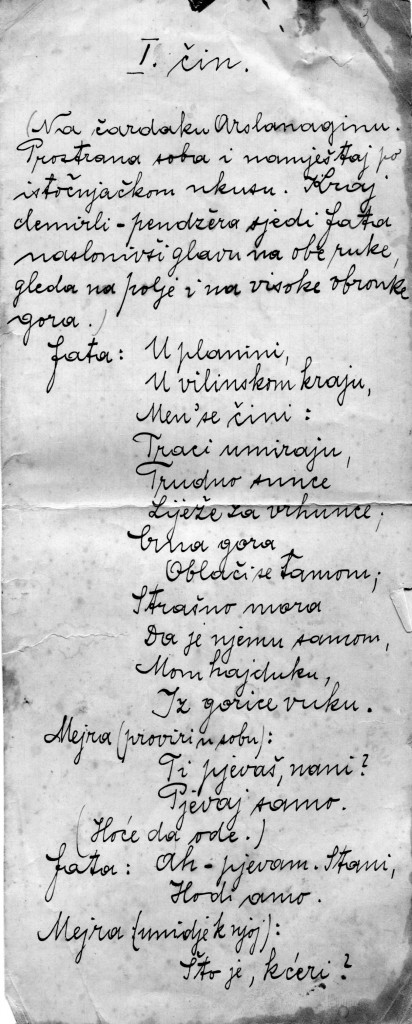 3
I. čin.
(Na čardaku Arslanaginu.
Prostrana soba i namještaj po
istočnjačkom ukusu. Kraj
demirli-pendžera sjedi Fata
naslonivši glavu na obe ruke,
gleda na polje i na visoke obronke
gora.)
Fata: U planini,
U vilinskom kraju,
Men' se čini:
Traci umiraju,
Trudno sunce
Liježe za vrhunce;
Crna gora
Oblači se tamom;
Strašno mora
Da je njemu samom,
Mom hajduku,
Iz gorice vuku.
Mejra (proviri u sobu):
Ti pjevaš, nani?
Pjevaj samo.
(Hoće da ode.)
Fata: Ah - pjevam. Stani,
Hodi amo.
Mejra (unidje k njoj):
Što je, kćeri?